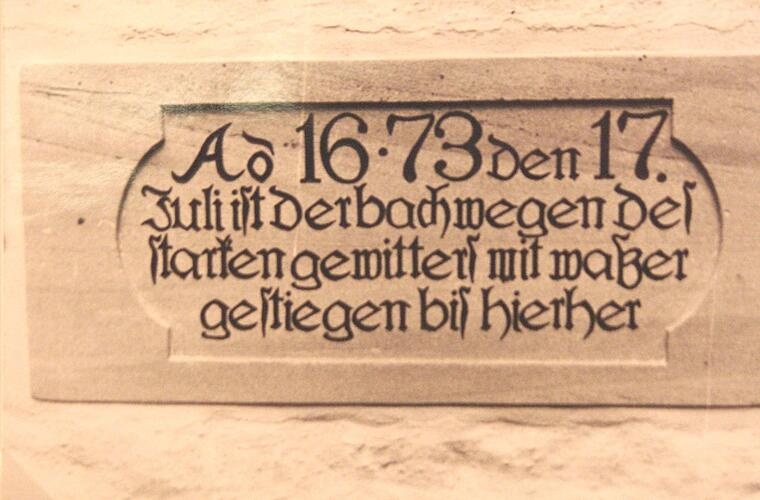 Ad 16·73 den 17.
Juli ist der bach wegen deſ
ſtarken gewitterſ mit waßer
geſtiegen biſ hierher